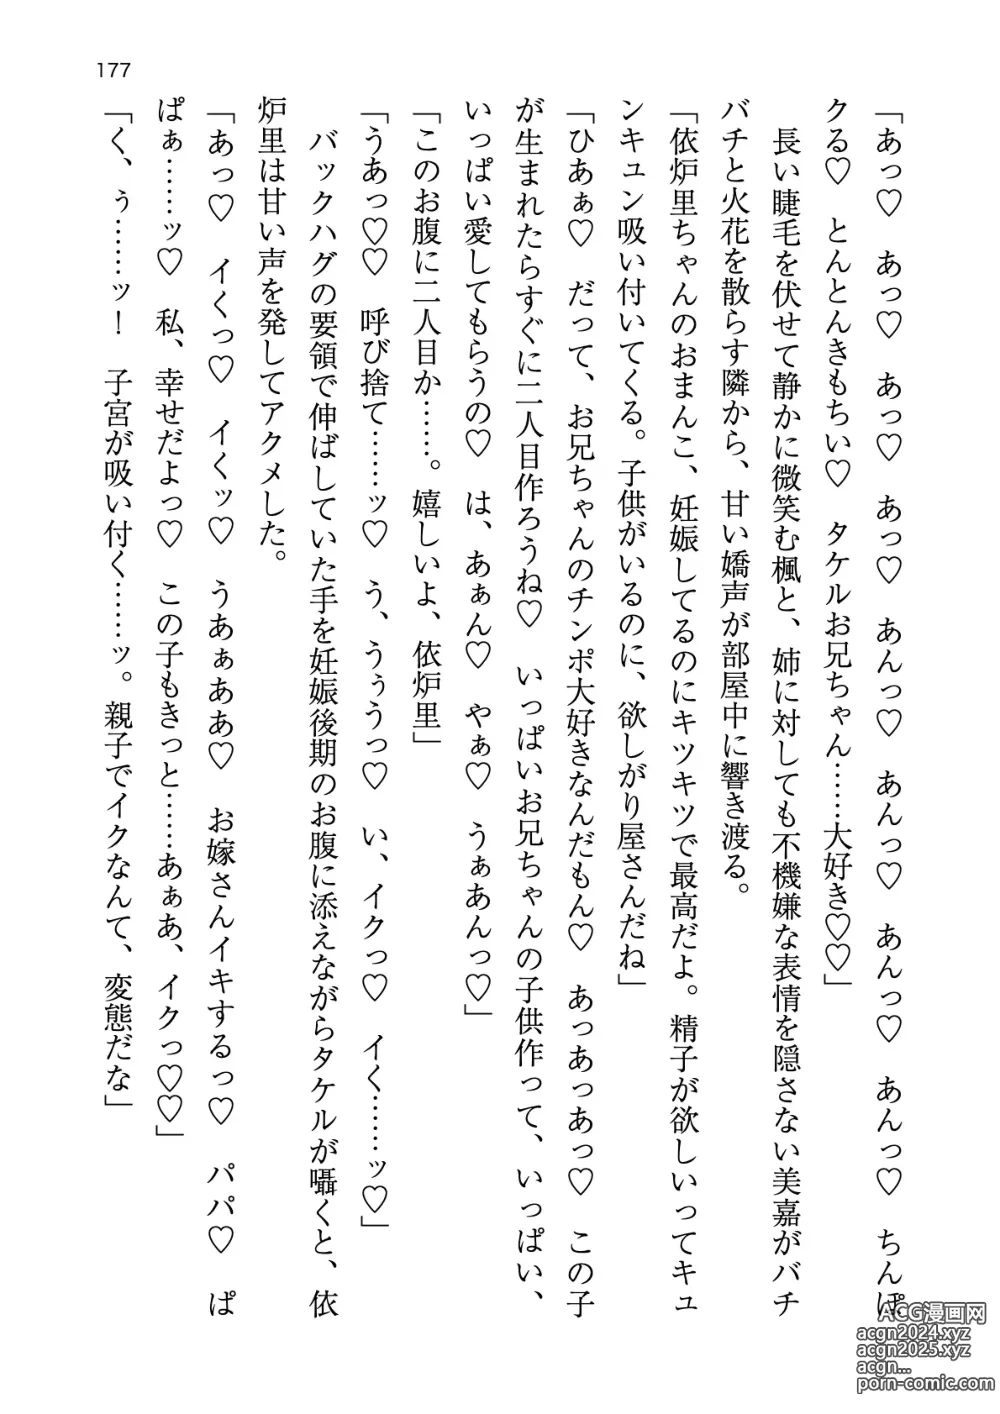 177
「あっ♡　あっ♡　あっ♡　あっ♡　あんっ♡　あんっ♡　あんっ♡　あんっ♡　ちんぽ
クる♡　とんとんきもちい♡　タケルお兄ちゃん……大好き♡♡」
　長い睫毛を伏せて静かに微笑む楓と、姉に対しても不機嫌な表情を隠さない美嘉がバチ
バチと火花を散らす隣から、甘い嬌声が部屋中に響き渡る。
「依炉里ちゃんのおまんこ、妊娠してるのにキツキツで最高だよ。精子が欲しいってキュ
ンキュン吸い付いてくる。子供がいるのに、欲しがり屋さんだね」
「ひあぁ♡　だって、お兄ちゃんのチンポ大好きなんだもん♡　あっあっあっ♡　この子
が生まれたらすぐに二人目作ろうね♡　いっぱいお兄ちゃんの子供作って、いっぱい、
いっぱい愛してもらうの♡　は、あぁん♡　やぁ♡　うぁあんっ♡」
「このお腹に二人目か……。嬉しいよ、依炉里」
「うあっ♡♡　呼び捨て……ッ♡　う、うぅうっ♡　い、イクっ♡　イく……ッ♡」
　バックハグの要領で伸ばしていた手を妊娠後期のお腹に添えながらタケルが囁くと、依
炉里は甘い声を発してアクメした。
「あっ♡　イくっ♡　イくッ♡　うあぁああ♡　お嫁さんイキするっ♡　パパ♡　ぱ
ぱぁ……ッ♡　私、幸せだよっ♡　この子もきっと……あぁあ、イクっ♡♡」
「く、ぅ……ッ！　子宮が吸い付く……ッ。親子でイクなんて、変態だな」
ACG漫画网
acgn2024.xyz
acgn2025.xyz
acgn...
porn-comic.com